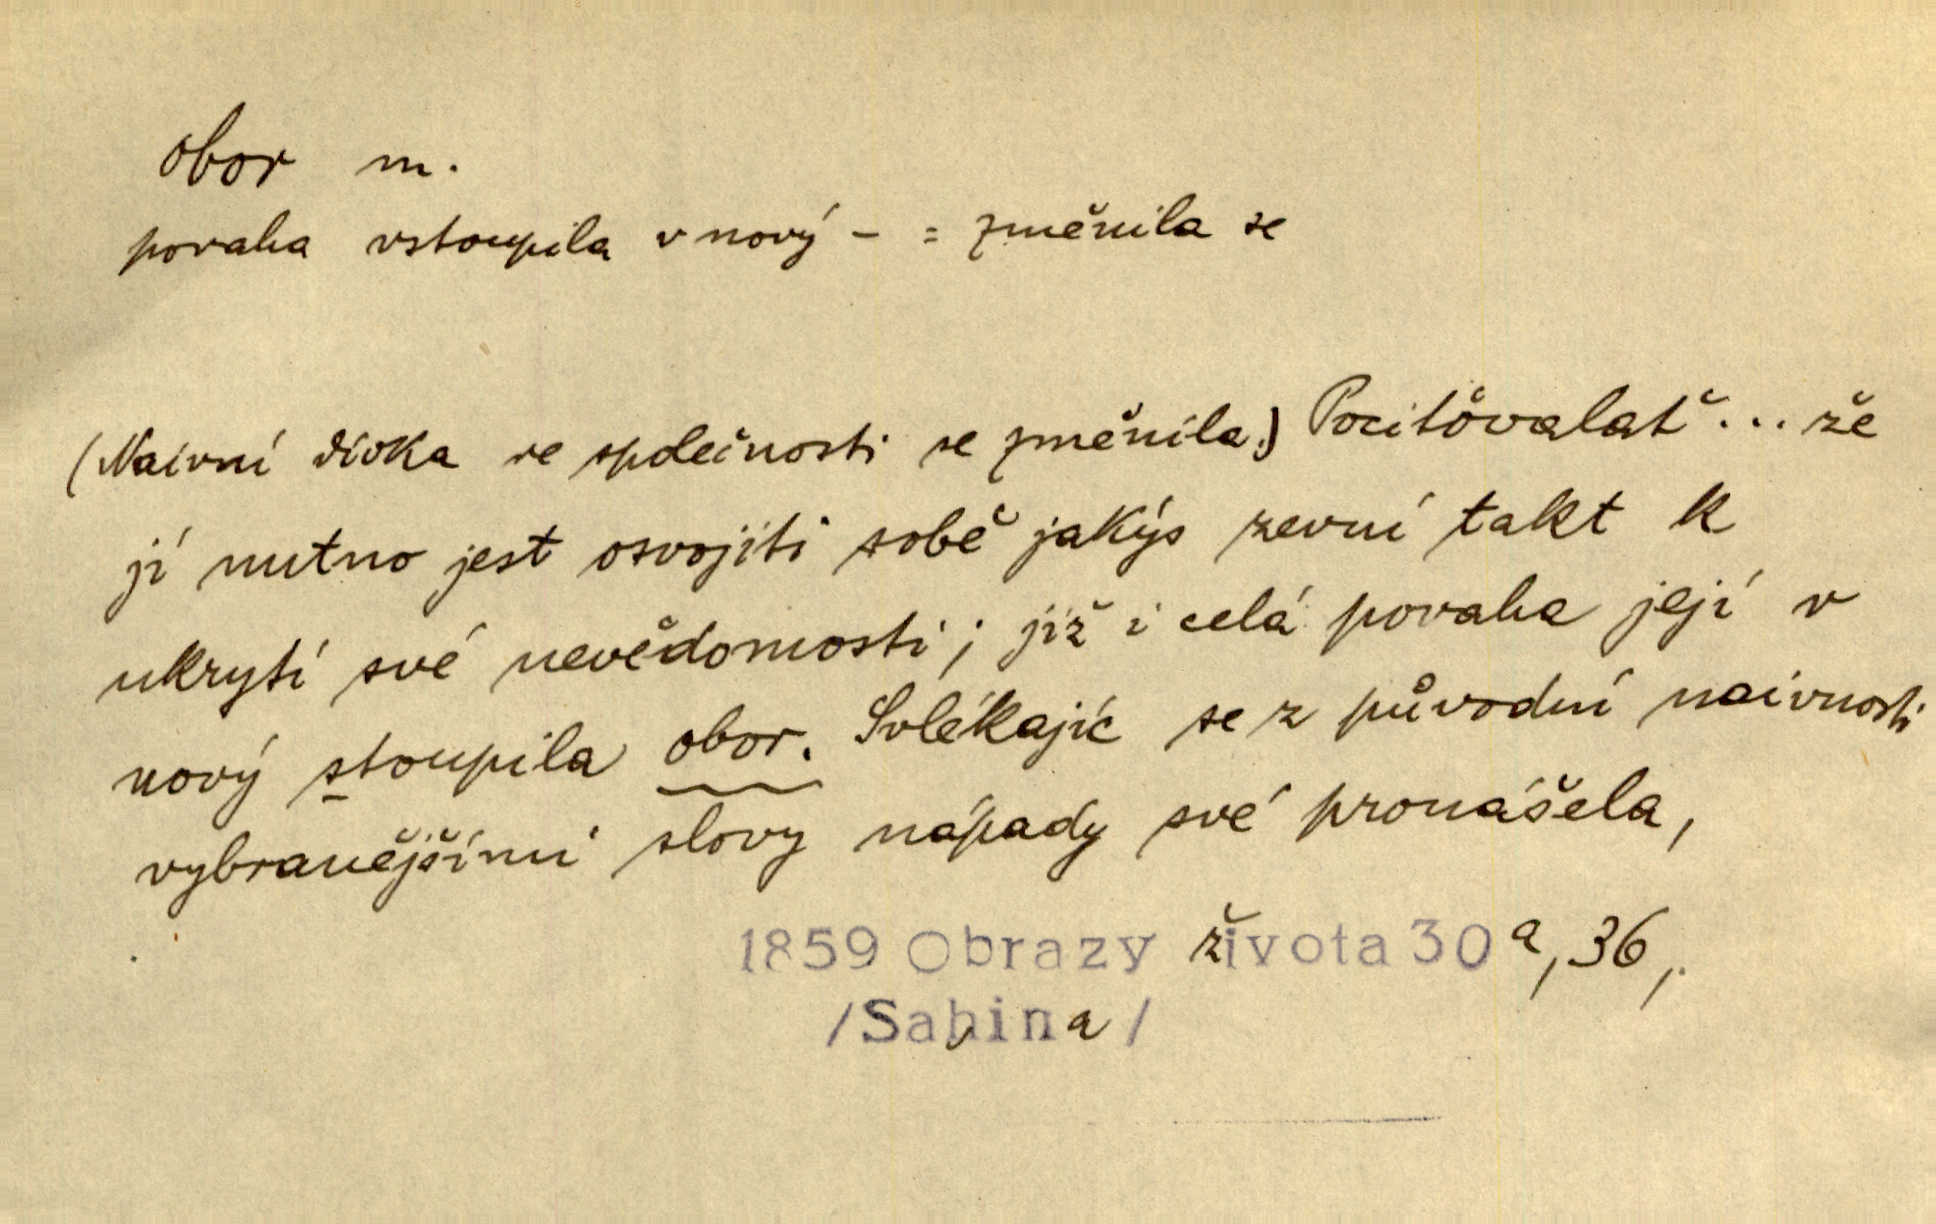 obor m.
povaha vstoupila v nový – = změnila se
(Naivní dívka ve společnosti se změnila.) Pociťovalať ... že
jí nutno jest osvojiti sobě jakýs zevní takt k
ukrytí své nevědomosti; již i celá povaha její v
nový stoupila obor. Svlékajíc se z původní naivnosti
vybranějšími slovy nápady své pronášela,
1859 Obrazy života 30a, 36,
/Sabina/